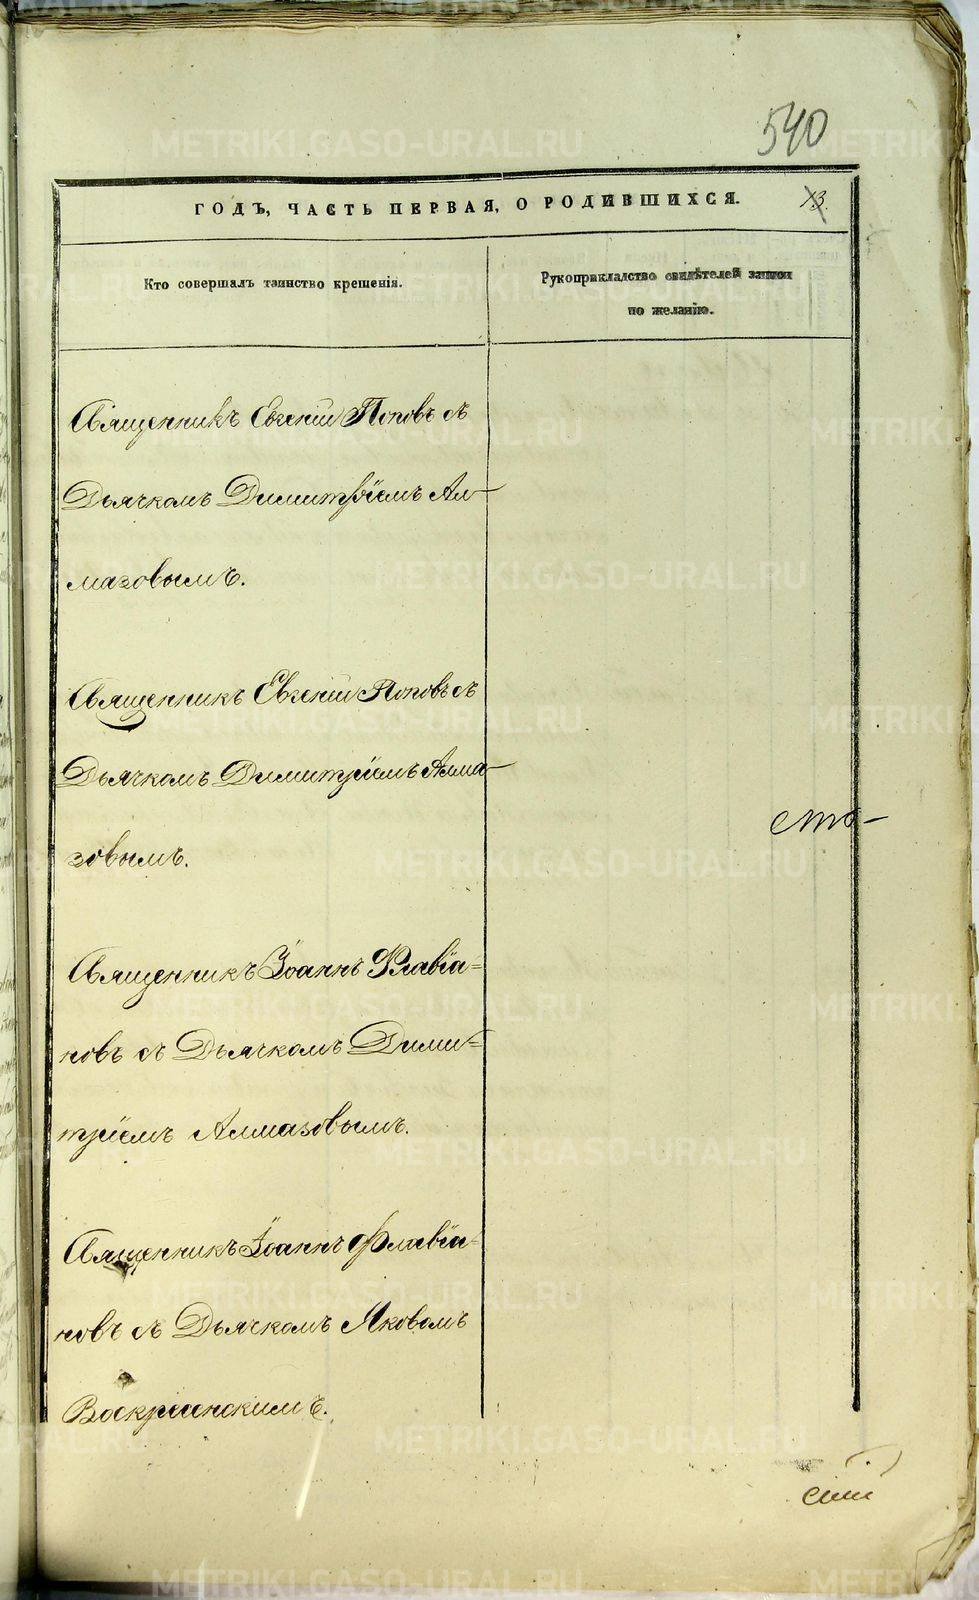 540
ГОДЪ, ЧАСТЬ ПЕРВАЯ, О РОДИВШИХСЯ.
Кто совершалъ таинство крещенія.
Рукоприкладство свидѣтелей записи
по желанію.
Священникъ Евгеній Поповъ съ
Дьячкомъ Димитріемъ Ал-
мазовымъ.
Священникъ Евгеній Поповъ съ
Дьячкомъ Димитріемъ Алма-
зовымъ.
сто-
Священникъ Іоаннъ Флавіа=
новъ съ Дьячкомъ Дими=
тріемъ Алмазовымъ.
Священникъ Іоаннъ Флавіа-
новъ съ Дьячкомъ Яковомъ
Воскресенскимъ.
METRIKI.GASO-URAL.RU